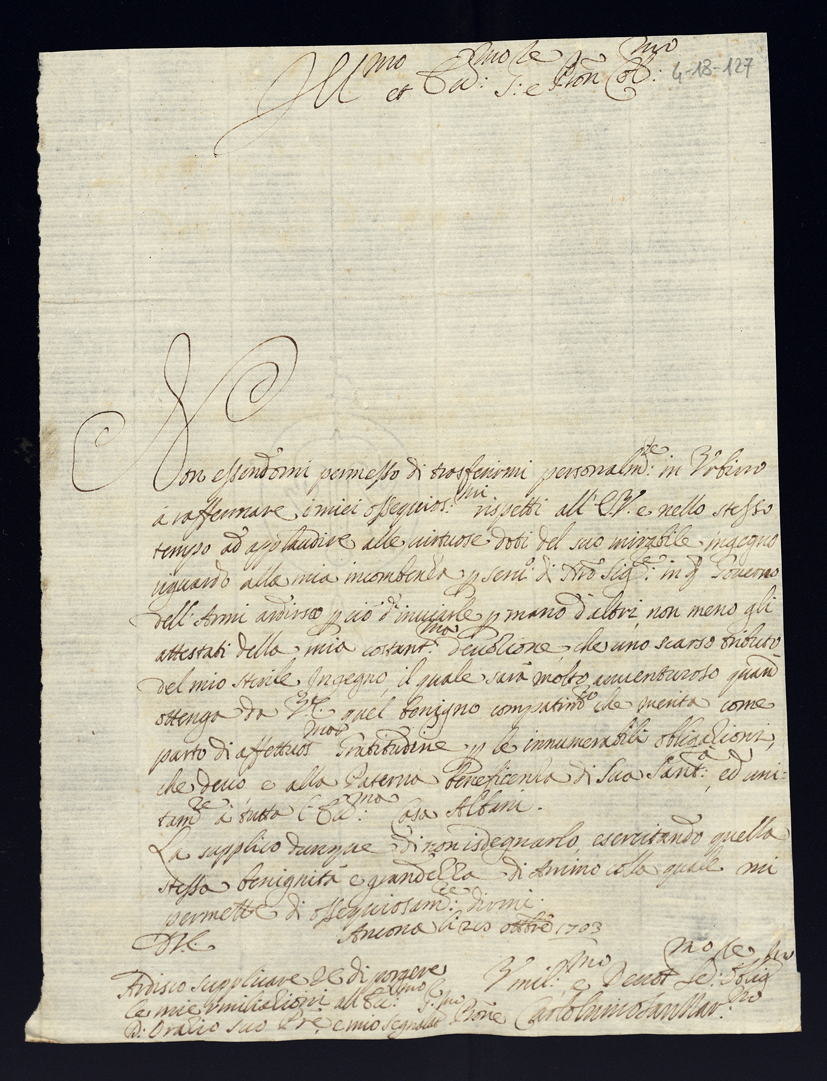 Ill.mo et Ecc.mo Sig.re e Pron Col.mo 4-18-127
Non essendomi permesso di trasferirmi personalm.te in Urbino
a raffermare i miei ossequios.mi rispetti all' E.V. e nello stesso
tempo ad applaudire alle virtuose doti del suo mirabile ingegno
riguardo alla mia incombenza p serv.o di Nro Sig.re in q.o Governo
dell'Armi ardisco p ciò d'inviarle p mano d'altri non meno gli
attestati della mia costant.ma devozione, che uno scarso tributo
del mio sterile Ingegno, il quale sarà molto avventuroso quando
ottenga da V.E. quel benigno compatim.to che merita come
parto di affettuos.ma Gratitudine p le innumerabili obligazioni,
che devo e alla Paterna beneficenza di Sua Sant.à, ed uni-
tam.te a tutta l'Ecc.ma Casa Albani.
La supplico dunque di non isdegnarlo, esercitando quella
stessa benignità e grandezza di Animo colla quale mi
permette di ossequiosam.te dirmi.
D.V.E. Ancona li 20 ottbre 1703
Ardisco supplicare V.E. di porgere
le mie umiliazioni all'Ecc.mo Sig.re
D. Orazio suo Pre, e mio segnalat.mo Prone
Umil.mo e Devot.mo Se.re Oblig.mo
Carlo